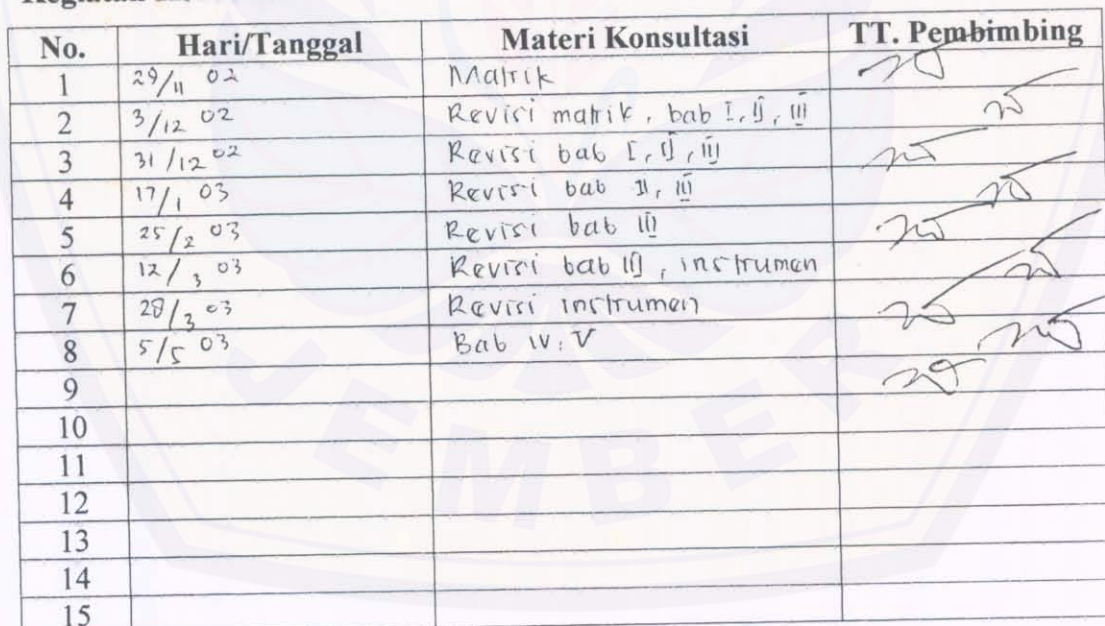 No. Hari/Tanggal Materi Konsultasi TT. Pembimbing
1 29/11 02 Matrik
2 3/12 02 Revisi matrik, bab I, II, III
3 31/12 02 Revisi bab I, II, III
4 17/1 03 Revisi bab II, III
5 25/2 03 Revisi bab III
6 12/3 03 Revisi bab III, instrumen
7 28/3 03 Revisi instrumen
8 5/5 03 Bab IV, V
9
10
11
12
13
14
15
JEMBER